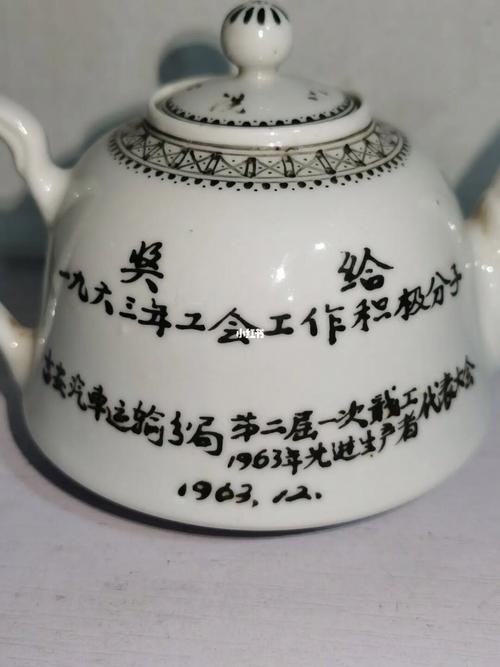 奖 给
一九六三年工会工作积极分子
吉安汽車运输分局
第二届一次职工
1963年先进生产者
代表大会
1963.12.
小红书